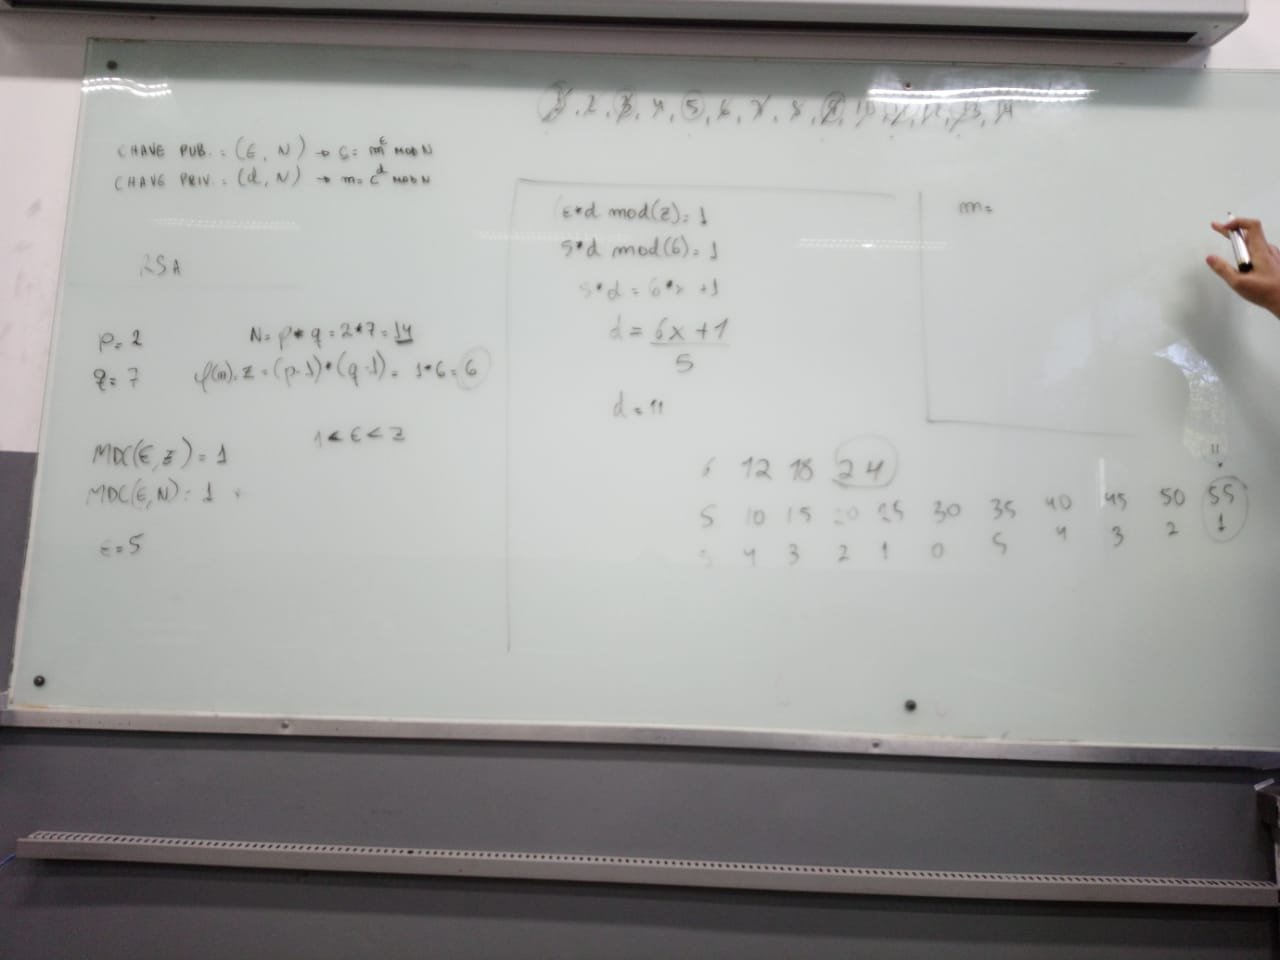 1, 2, 3, 4, 5, 6, 7, 8, 9, 10, 11, 12, 13, 14
CHAVE PUB. = (E, N) → C = m^E MOD N
CHAVE PRIV. = (d, N) → m = C^d MOD N
RSA
p = 2
N = p * q = 2 * 7 = 14
q = 7
φ(n) = Z = (p-1) * (q-1) = 1 * 6 = 6
1 < E < Z
MDC(E, Z) = 1
MDC(E, N) = 1
E = 5
E * d mod(Z) = 1
5 * d mod(6) = 1
5 * d = 6 * x + 1
d = 6x + 1
5
d = 11
m =
6 12 18 24
11
5 10 15 20 25 30 35 40 45 50 55
5 4 3 2 1 0 5 4 3 2 1